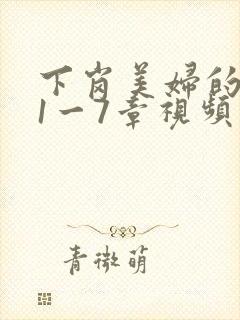 下岗美婦的
1一7章視頻
青微萌